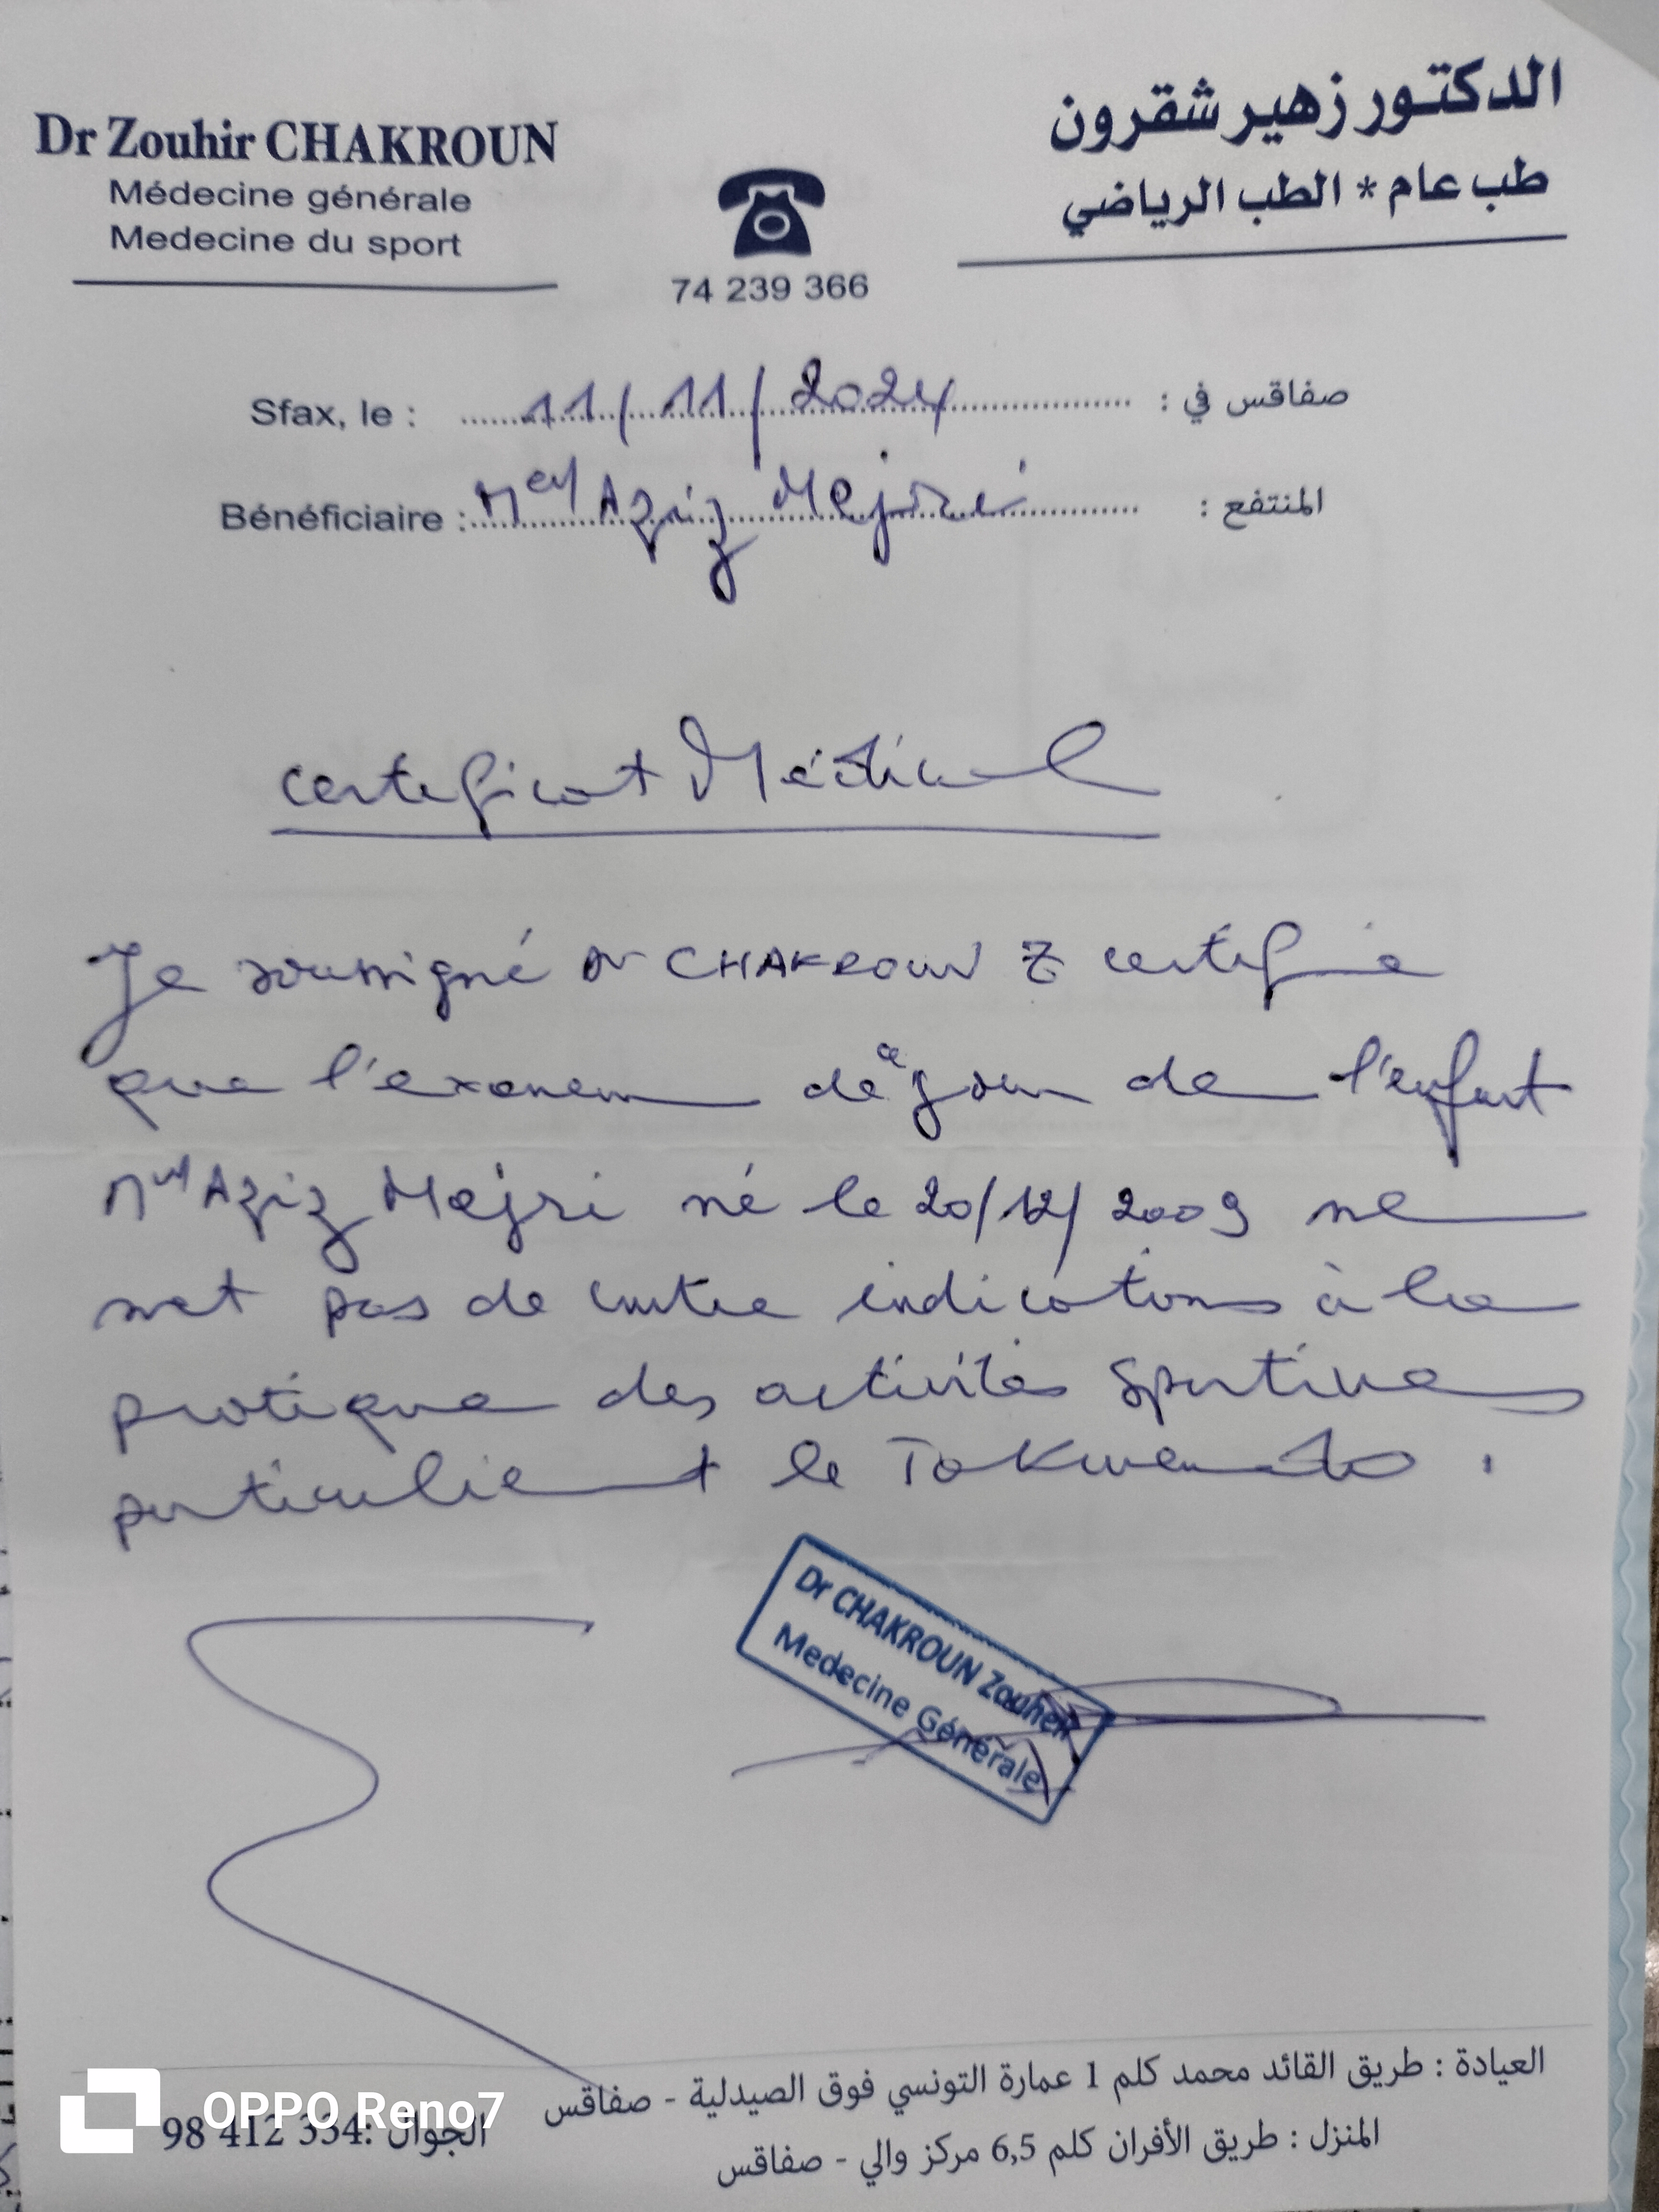 Dr Zouhir CHAKROUN
Médecine générale
Medecine du sport
74 239 366
الدكتور زهير شقرون
طب عام * الطب الرياضي
Sfax, le : 11/11/2024 صفاقس في :
Bénéficiaire : Med Aziz Mejri المنتفع :
Certificat Médical
Je soussigné Dr CHAKROUN Z certifie
que l'examen de ce jour de l'enfant
Med Aziz Mejri né le 20/12/2009 ne
met pas de contre indications à la
pratique des activités sportives
particulient le Takwendo.
Dr CHAKROUN Zouheir
Medecine Générale
العيادة : طريق القائد محمد كلم 1 عمارة التونسي فوق الصيدلية - صفاقس
المنزل : طريق الأفران كلم 6,5 مركز والي - صفاقس
الجوال :98 412 334
OPPO Reno7